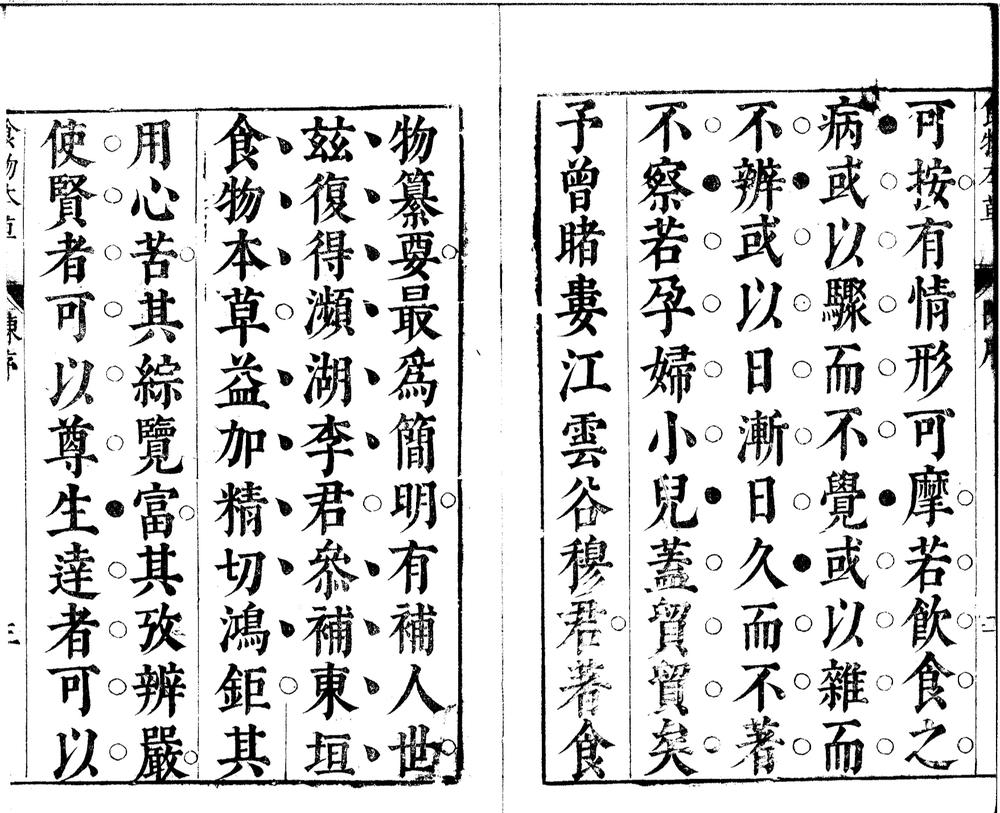 可按有情形可摩若飲食之
病或以驟而不覺或以雜而
不辨或以日漸日久而不著
不察若孕婦小兒蓋貿貿矣
予曾睹婁江雲谷穆君著食
物纂要最爲簡明有補人世
玆復得瀕湖李君叅補東垣
食物本草益加精切鴻鉅其
用心苦其綜覽富其攷辨嚴
使賢者可以尊生達者可以
食物本草
陳序
三